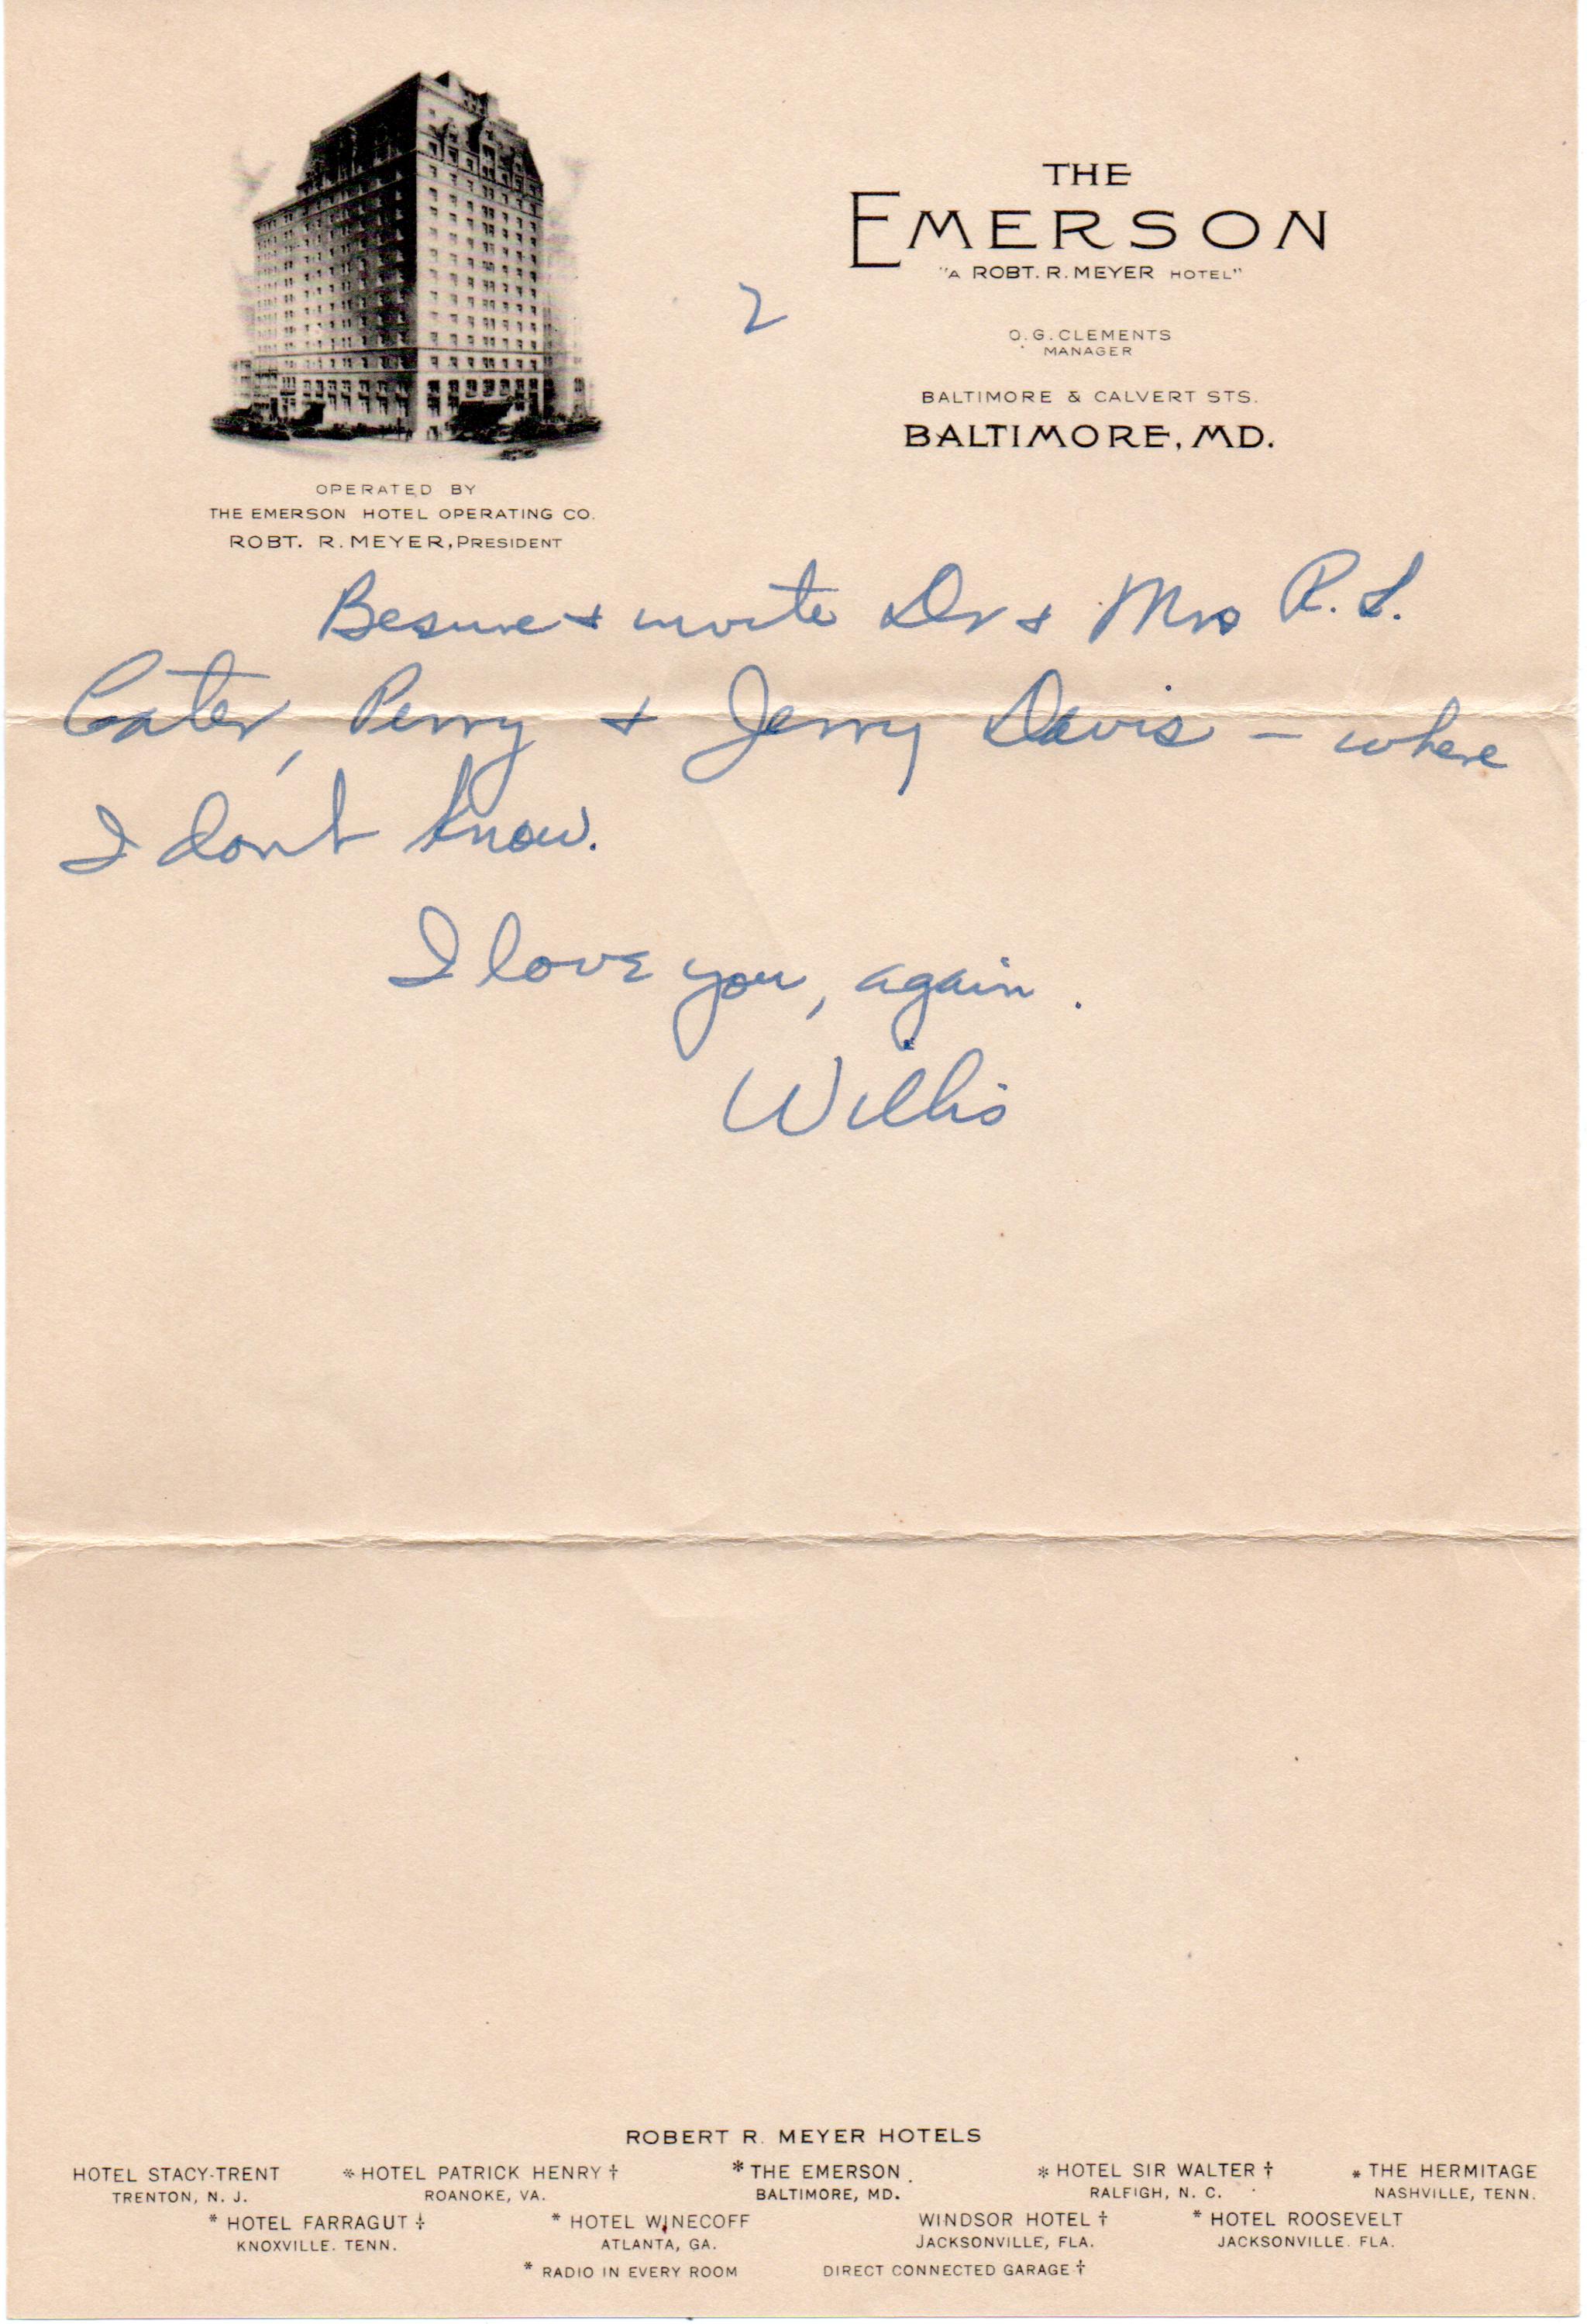 THE
EMERSON
"A ROBT. R. MEYER HOTEL"
2
O. G. CLEMENTS
MANAGER
BALTIMORE & CALVERT STS.
BALTIMORE, MD.
OPERATED BY
THE EMERSON HOTEL OPERATING CO.
ROBT. R. MEYER, PRESIDENT
Besure + invite Dr + Mrs R. L.
Cater, Perry + Jerry Davis – where
I don't know.
I love you, again.
Willis
ROBERT R. MEYER HOTELS
HOTEL STACY-TRENT * HOTEL PATRICK HENRY † * THE EMERSON * HOTEL SIR WALTER † * THE HERMITAGE
TRENTON, N. J. ROANOKE, VA. BALTIMORE, MD. RALEIGH, N. C. NASHVILLE, TENN.
* HOTEL FARRAGUT † * HOTEL WINECOFF WINDSOR HOTEL † * HOTEL ROOSEVELT
KNOXVILLE. TENN. ATLANTA, GA. JACKSONVILLE, FLA. JACKSONVILLE. FLA.
* RADIO IN EVERY ROOM DIRECT CONNECTED GARAGE †